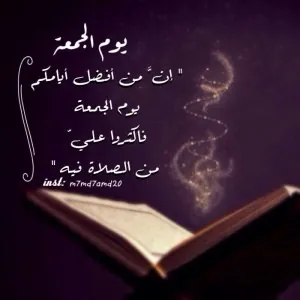 يوم الجمعة
" إنَّ من أفضل أيامكم
يوم الجمعة
فاكثروا عليّ
من الصلاة فيه "
inst: m7md7amd20